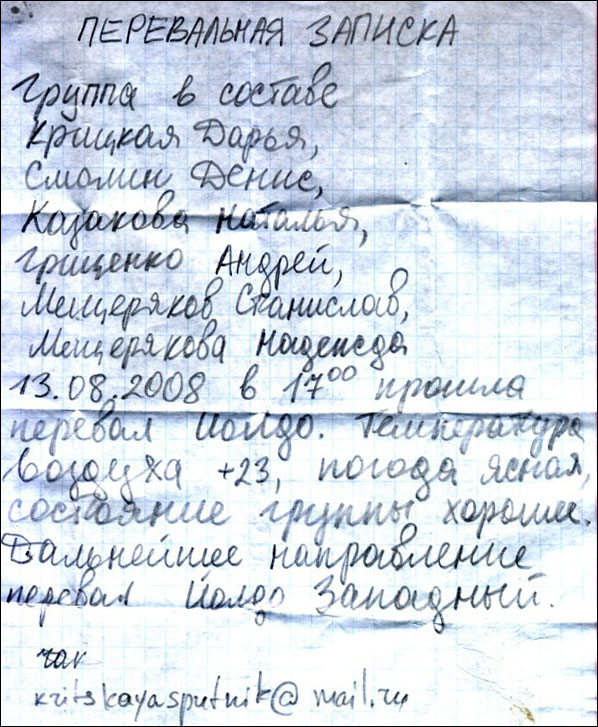 ПЕРЕВАЛЬНАЯ ЗАПИСКА
Группа в составе
Крицкая Дарья,
Смолин Денис,
Казакова Наталья,
Гриценко Андрей,
Мещеряков Станислав,
Мещерякова Надежда
13.08.2008 в 17⁰⁰ прошла
перевал Иолдо. Температура
воздуха +23, погода ясная,
состояние группы хорошее.
Дальнейшее направление
перевал Иолдо Западный.
kritskayasputnik@mail.ru